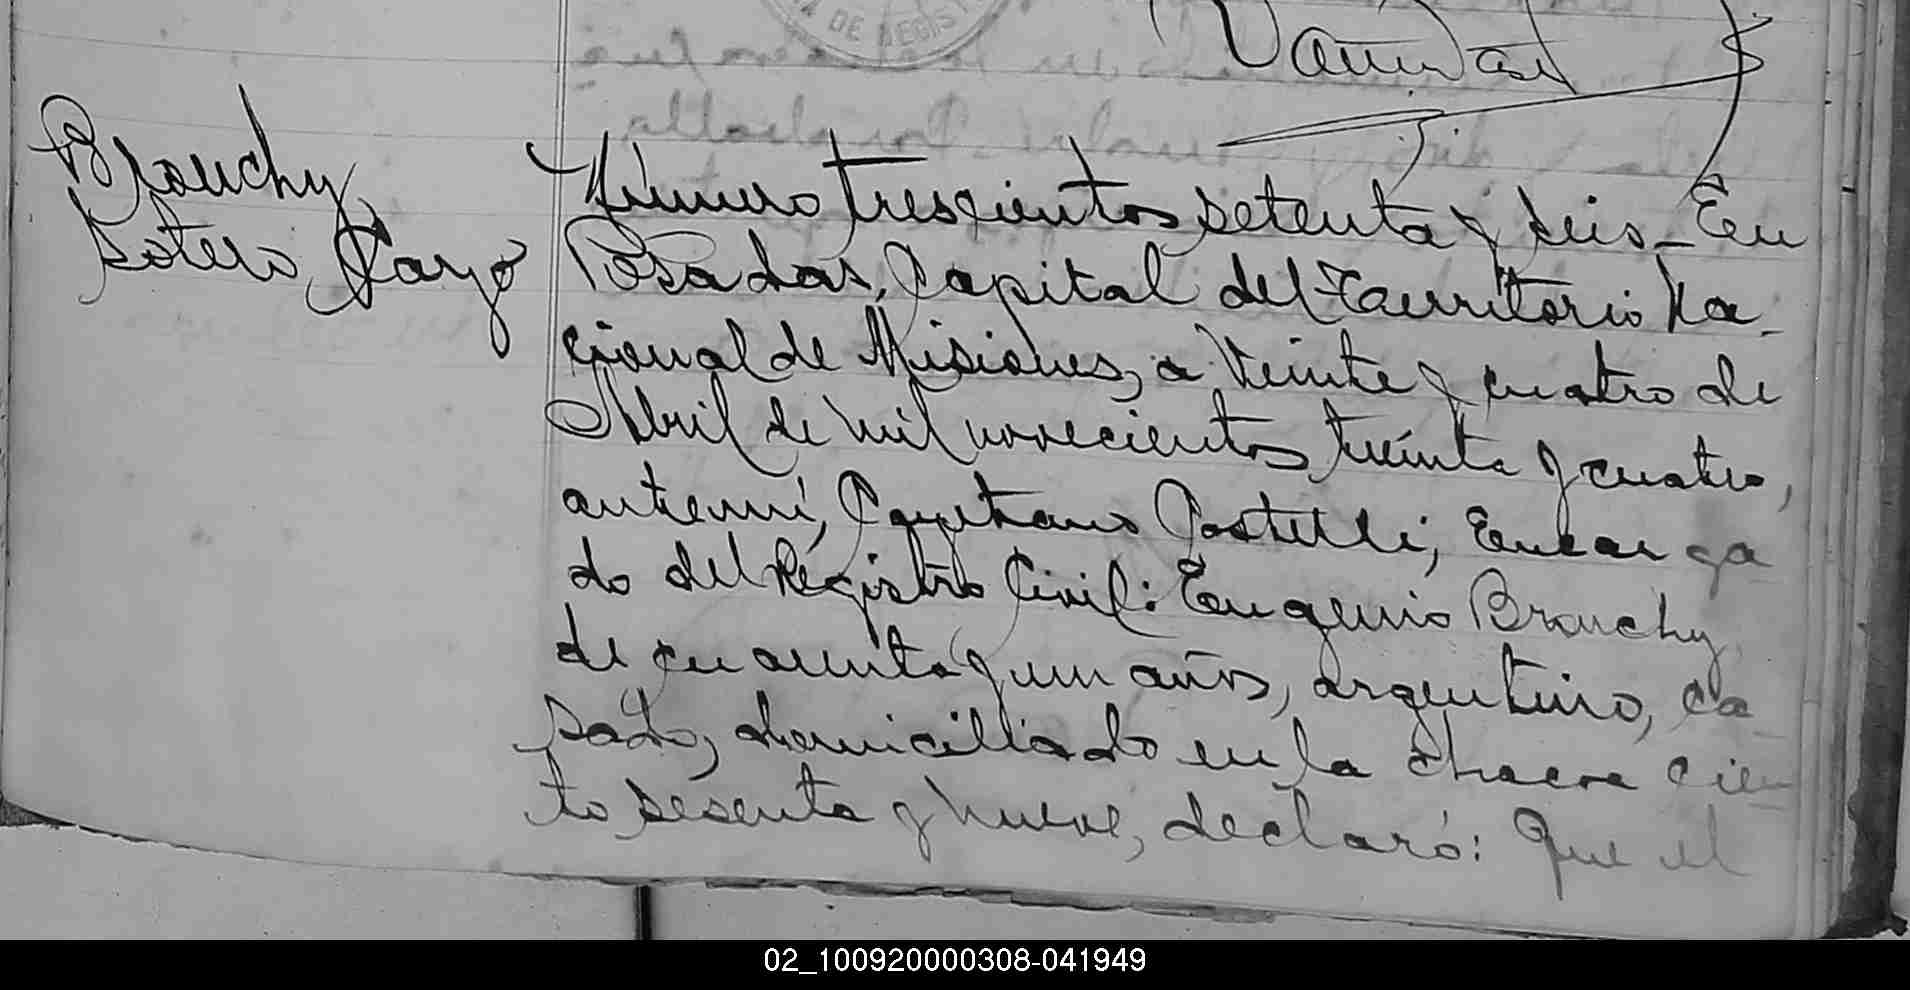 DE REGIST
Brouchy
Sotero Cayo
Número trescientos setenta y seis_ En
Posadas, Capital del Territorio Na_
cional de Misiones, a veinte y cuatro de
Abril de mil novecientos treinta y cuatro,
ante mí, Cayetano Castelli, Encarga
do del Registro Civil: Eugenio Brouchy
de cuarenta y un años, argentino, ca_
sado, domiciliado en la chacra cien_
to sesenta y nueve, declaró: Que el
02_100920000308-041949